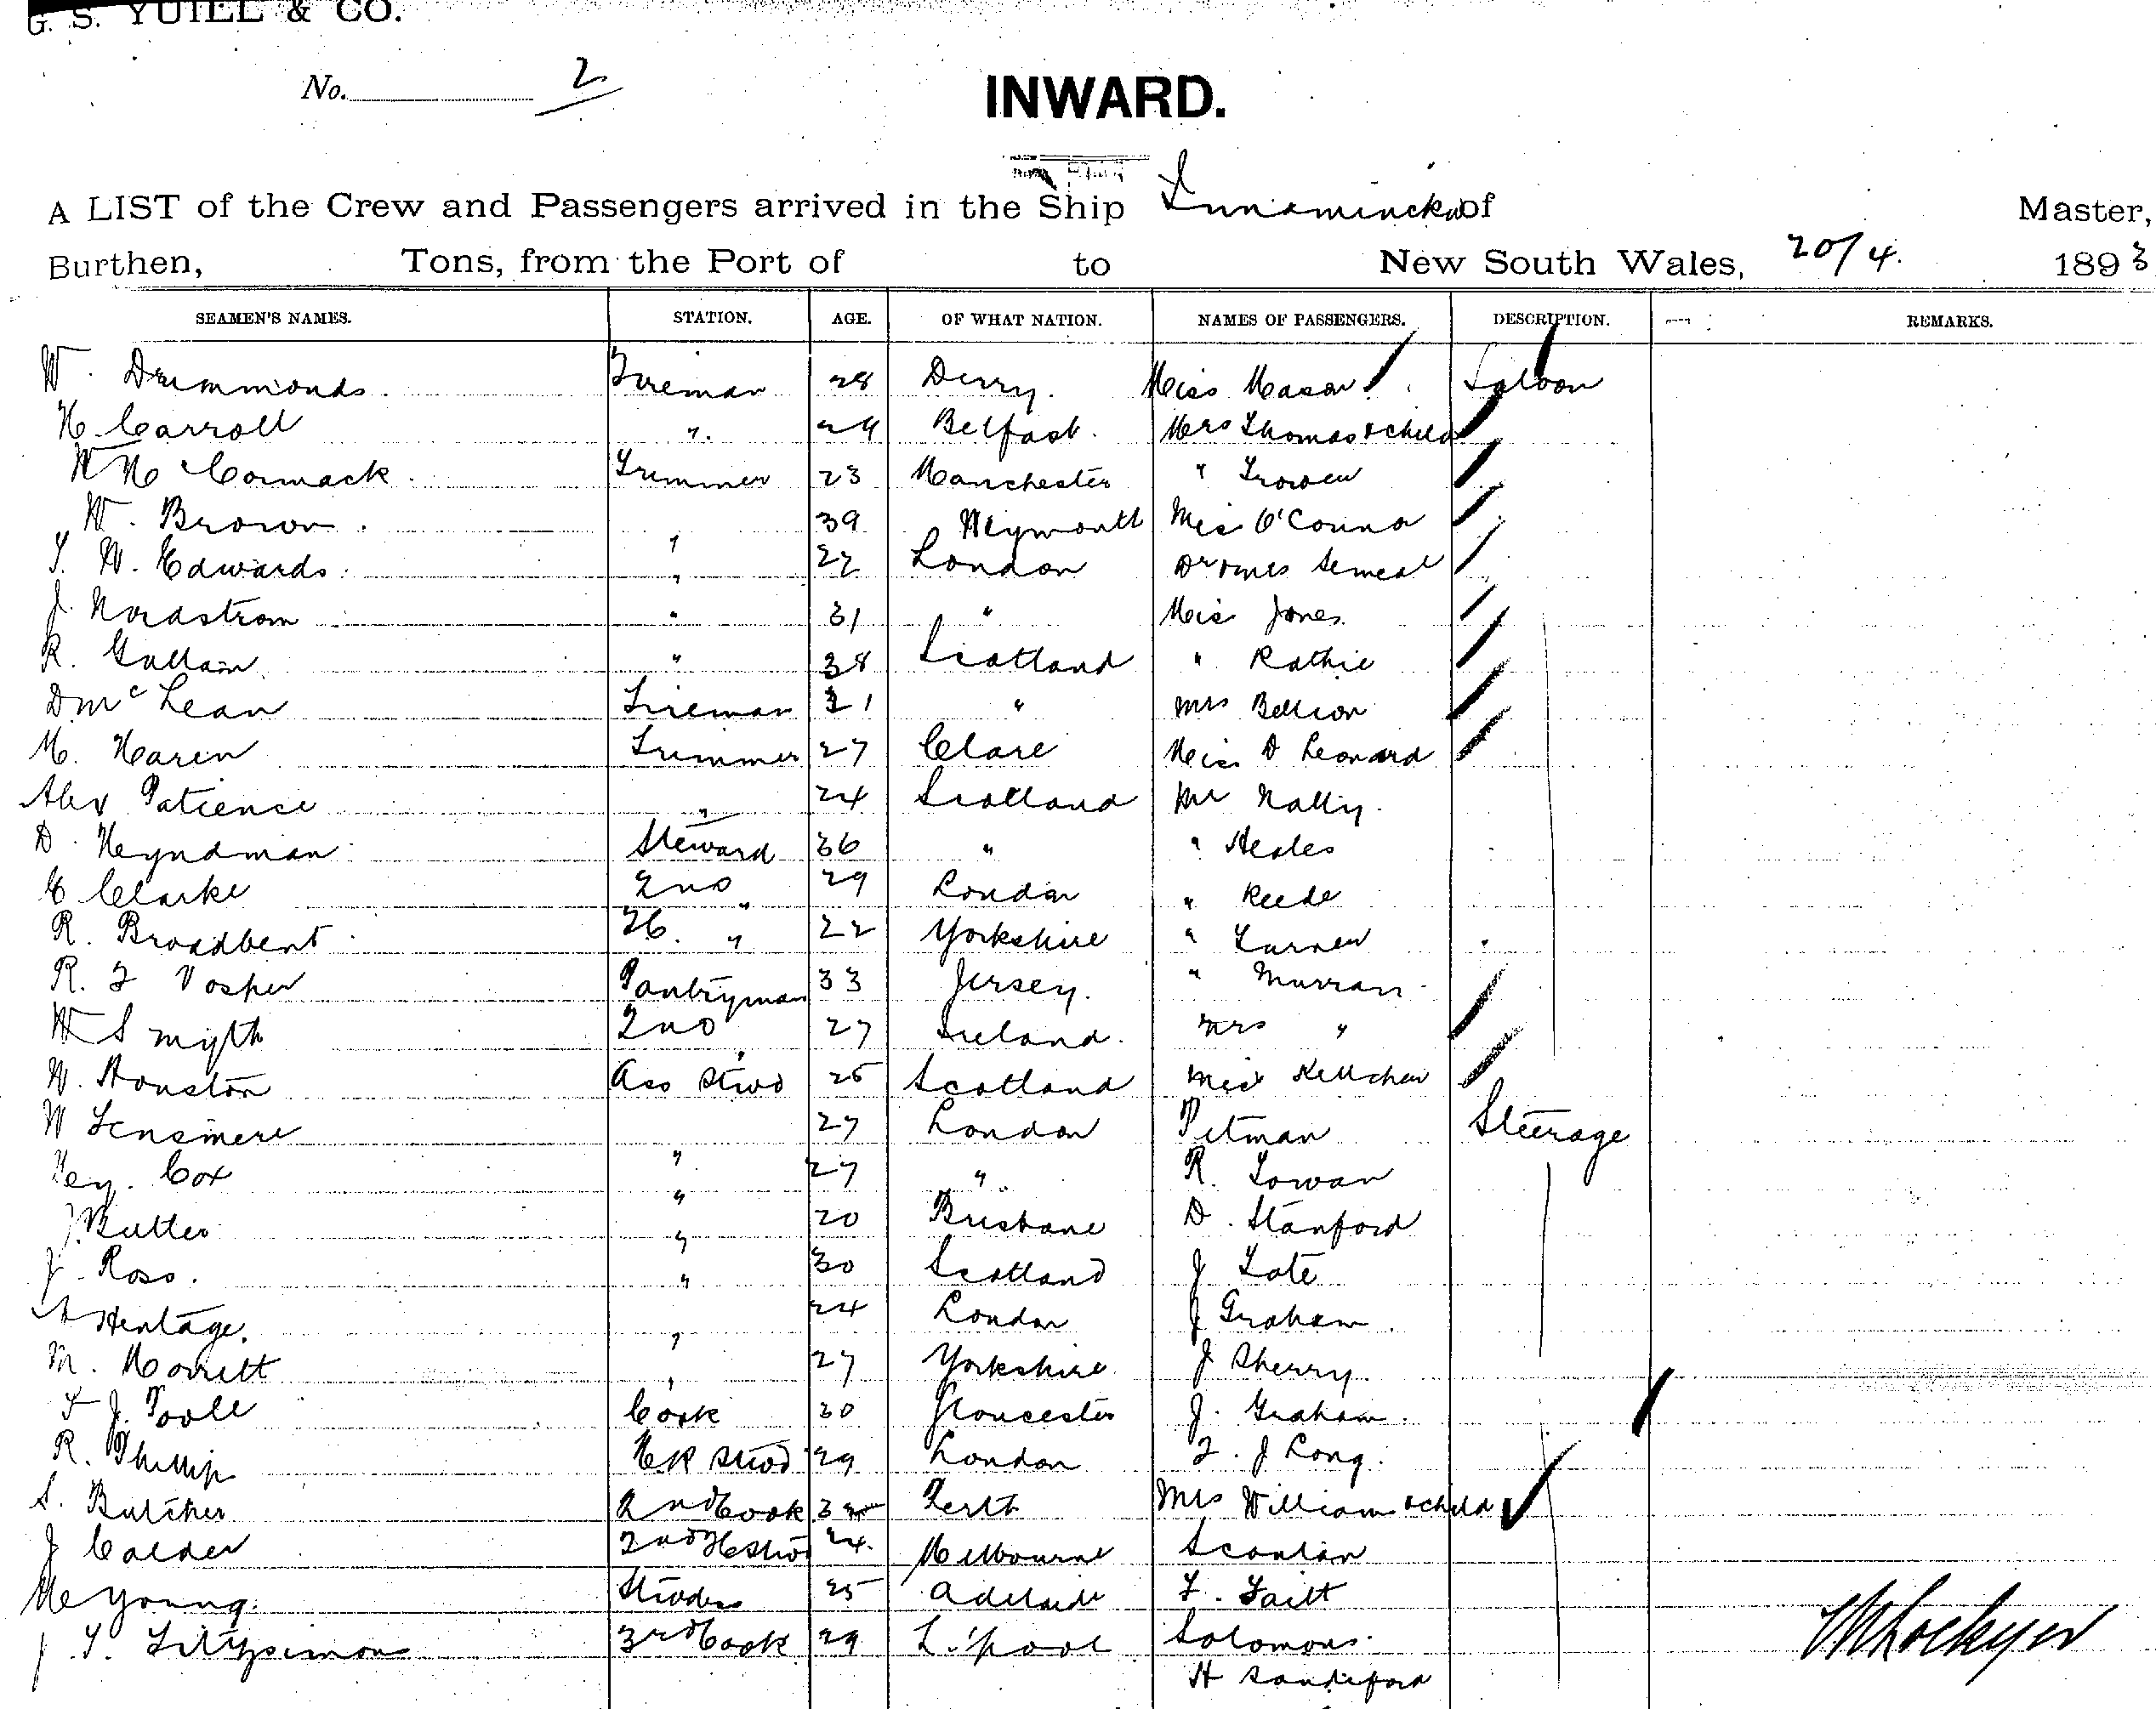 G. S. YUILL & CO.
No. 2
INWARD.
A LIST of the Crew and Passengers arrived in the Ship Innamincka of Master,
Burthen, Tons, from the Port of to New South Wales, 20/4. 1893
SEAMEN'S NAMES. STATION. AGE. OF WHAT NATION. NAMES OF PASSENGERS. DESCRIPTION. REMARKS.
W. Drummonds. Fireman 28 Derry. Miss Mason Saloon
H. Carroll " 29 Belfast. Mrs Thomas & child
W Mc Cormack. Trimmer 23 Manchester "
W. Brown. 39 Weymouth Miss O'Connor
T. W. Edwards. " 22 London
J. Nordstrom " 31 " Miss Jones.
R. Gullain " 38 Scotland " Rathie
D Mc Lean Fireman 31 " Mrs
M. Haren Trimmer 27 Clare Miss D Leonard
Alex Patience " 24 Scotland Mr Nally.
D. Heyndman Steward 36 " " Heales
C Clarke 2nd " 29 London " Reede
R. Broadbent " 22 Yorkshire " Turner
R. F Vosper Pantryman 33 Jersey. " Murray
W Smyth 2nd " 27 Ireland. Mrs "
W. Houston Ass Stwd 25 Scotland Miss
W Tensmere 27 London Pitman Steerage
Hey. Cox " 27 " R. Towan
J. Butler " 20 Brisbane D. Stanford
J. Ross. " 30 Scotland J Tate
Hentage. 24 London J Graham.
M. Morrett " 27 Yorkshire J Sherry.
T J. Poole Cook 30 Gloucester J. Graham.
R. Phillip Stwd 29 London F. J Long.
S. Butcher 2nd Cook Perth Mrs William & child
J Calder 2nd Stwd 24. Melbourne Scanlan
Mc Young. Stwdess 25 Adelaide F. Tait
J. T. Fitzsimon 3rd Cook 29 L'pool Solomons.
H Sandiford
W Lockyer